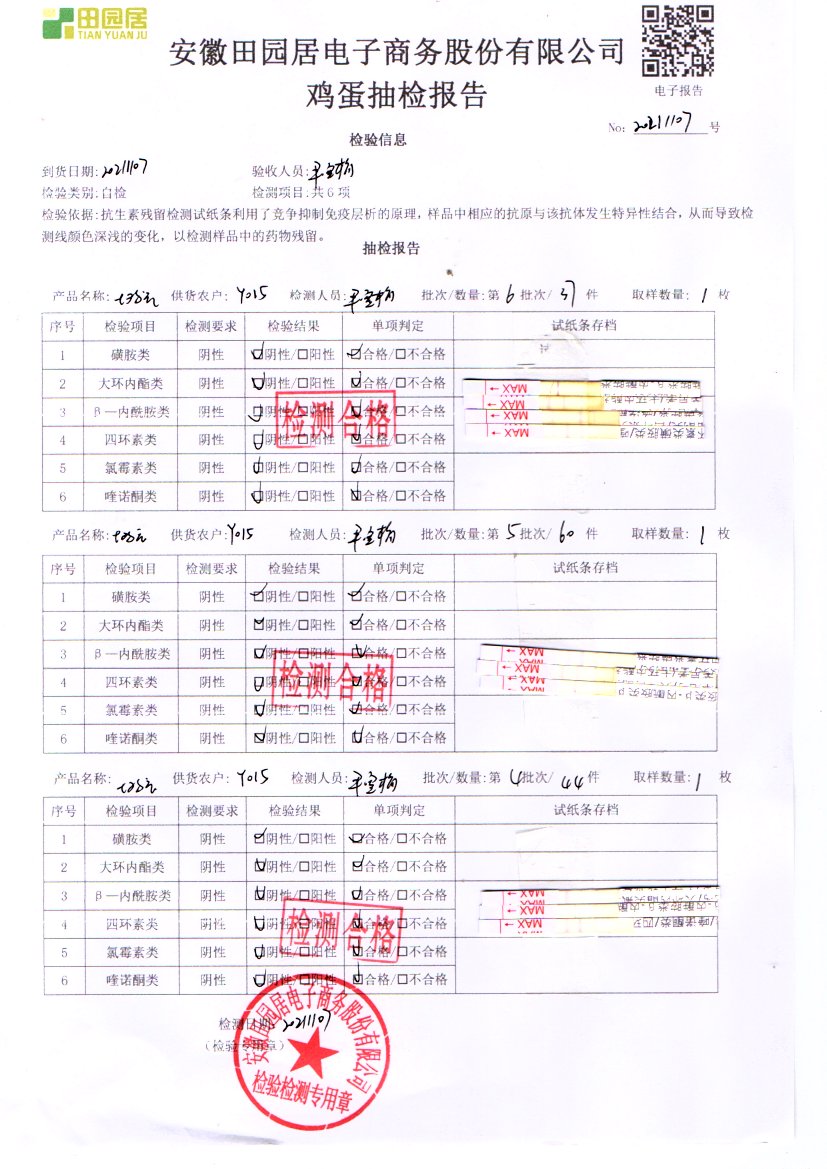 田园居
TIAN YUAN JU
安徽田园居电子商务股份有限公司
鸡蛋抽检报告
电子报告
No: 20211107 号
检验信息
到货日期:20211107 验收人员:
检验类别:自检 检测项目:共6项
检验依据:抗生素残留检测试纸条利用了竞争抑制免疫层析的原理，样品中相应的抗原与该抗体发生特异性结合，从而导致检
测线颜色深浅的变化，以检测样品中的药物残留。
抽检报告
产品名称: 供货农户:Y015 检测人员: 批次/数量:第6批次/37件 取样数量:1枚
序号 检验项目 检测要求 检验结果 单项判定 试纸条存档
1 磺胺类 阴性 ☑阴性/□阳性 ☑合格/□不合格
2 大环内酯类 阴性 ☑阴性/□阳性 ☑合格/□不合格
3 β—内酰胺类 阴性 ☑阴性/□阳性 ☑合格/□不合格
4 四环素类 阴性 ☑阴性/□阳性 ☑合格/□不合格
5 氯霉素类 阴性 ☑阴性/□阳性 ☑合格/□不合格
6 喹诺酮类 阴性 ☑阴性/□阳性 ☑合格/□不合格
检测合格
MAX
MAX
MAX
MAX
产品名称: 供货农户:Y015 检测人员: 批次/数量:第5批次/60件 取样数量:1枚
序号 检验项目 检测要求 检验结果 单项判定 试纸条存档
1 磺胺类 阴性 ☑阴性/□阳性 ☑合格/□不合格
2 大环内酯类 阴性 ☑阴性/□阳性 ☑合格/□不合格
3 β—内酰胺类 阴性 ☑阴性/□阳性 ☑合格/□不合格
4 四环素类 阴性 ☑阴性/□阳性 ☑合格/□不合格
5 氯霉素类 阴性 ☑阴性/□阳性 ☑合格/□不合格
6 喹诺酮类 阴性 ☑阴性/□阳性 ☑合格/□不合格
检测合格
MAX
MAX
MAX
产品名称: 供货农户:Y015 检测人员: 批次/数量:第4批次/44件 取样数量:1枚
序号 检验项目 检测要求 检验结果 单项判定 试纸条存档
1 磺胺类 阴性 ☑阴性/□阳性 ☑合格/□不合格
2 大环内酯类 阴性 ☑阴性/□阳性 ☑合格/□不合格
3 β—内酰胺类 阴性 ☑阴性/□阳性 ☑合格/□不合格
4 四环素类 阴性 ☑阴性/□阳性 ☑合格/□不合格
5 氯霉素类 阴性 ☑阴性/□阳性 ☑合格/□不合格
6 喹诺酮类 阴性 ☑阴性/□阳性 ☑合格/□不合格
检测合格
MAX
MAX
MAX
检测日期:20211107
（检验专用章）
安徽田园居电子商务股份有限公司
检验检测专用章